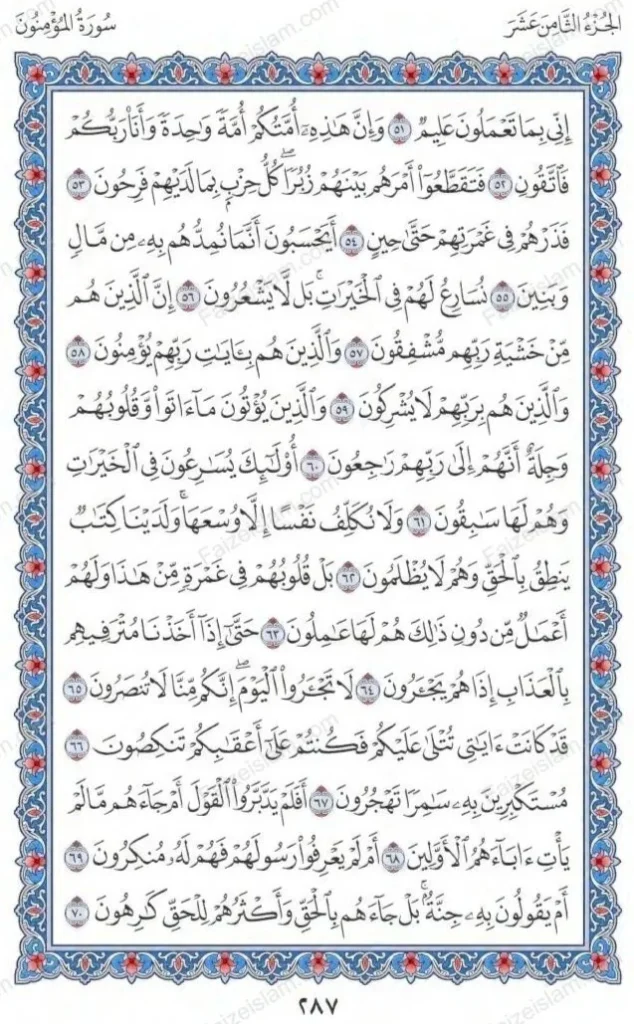 الجُزْءُ الثَّامِنَ عَشَرَ
سُورَةُ المُؤْمِنُونَ
إِنِّي بِمَا تَعْمَلُونَ عَلِيمٌ ٥١ وَإِنَّ هَٰذِهِۦٓ أُمَّتُكُمْ أُمَّةً وَٰحِدَةً وَأَنَا۠ رَبُّكُمْ
فَٱتَّقُونِ ٥٢ فَتَقَطَّعُوٓا۟ أَمْرَهُم بَيْنَهُمْ زُبُرًاۖ كُلُّ حِزْبٍۭ بِمَا لَدَيْهِمْ فَرِحُونَ ٥٣
فَذَرْهُمْ فِي غَمْرَتِهِمْ حَتَّىٰ حِينٍ ٥٤ أَيَحْسَبُونَ أَنَّمَا نُمِدُّهُم بِهِۦ مِن مَّالٍ
وَبَنِينَ ٥٥ نُسَارِعُ لَهُمْ فِي ٱلْخَيْرَٰتِۚ بَل لَّا يَشْعُرُونَ ٥٦ إِنَّ ٱلَّذِينَ هُم
مِّنْ خَشْيَةِ رَبِّهِم مُّشْفِقُونَ ٥٧ وَٱلَّذِينَ هُم بِـَٔايَٰتِ رَبِّهِمْ يُؤْمِنُونَ ٥٨
وَٱلَّذِينَ هُم بِرَبِّهِمْ لَا يُشْرِكُونَ ٥٩ وَٱلَّذِينَ يُؤْتُونَ مَآ ءَاتَوا۟ وَّقُلُوبُهُمْ
وَجِلَةٌ أَنَّهُمْ إِلَىٰ رَبِّهِمْ رَٰجِعُونَ ٦٠ أُو۟لَٰٓئِكَ يُسَٰرِعُونَ فِي ٱلْخَيْرَٰتِ
وَهُمْ لَهَا سَٰبِقُونَ ٦١ وَلَا نُكَلِّفُ نَفْسًا إِلَّا وُسْعَهَاۚ وَلَدَيْنَا كِتَٰبٌ
يَنطِقُ بِٱلْحَقِّ وَهُمْ لَا يُظْلَمُونَ ٦٢ بَلْ قُلُوبُهُمْ فِي غَمْرَةٍ مِّنْ هَٰذَا وَلَهُمْ
أَعْمَٰلٌ مِّن دُونِ ذَٰلِكَ هُمْ لَهَا عَٰمِلُونَ ٦٣ حَتَّىٰٓ إِذَآ أَخَذْنَا مُتْرَفِيهِم
بِٱلْعَذَابِ إِذَا هُمْ يَجْـَٔرُونَ ٦٤ لَا تَجْـَٔرُوا۟ ٱلْيَوْمَۖ إِنَّكُم مِّنَّا لَا تُنصَرُونَ ٦٥
قَدْ كَانَتْ ءَايَٰتِي تُتْلَىٰ عَلَيْكُمْ فَكُنتُمْ عَلَىٰٓ أَعْقَٰبِكُمْ تَنكِصُونَ ٦٦
مُسْتَكْبِرِينَ بِهِۦ سَٰمِرًا تَهْجُرُونَ ٦٧ أَفَلَمْ يَدَّبَّرُوا۟ ٱلْقَوْلَ أَمْ جَآءَهُم مَّا لَمْ
يَأْتِ ءَابَآءَهُمُ ٱلْأَوَّلِينَ ٦٨ أَمْ لَمْ يَعْرِفُوا۟ رَسُولَهُمْ فَهُمْ لَهُۥ مُنكِرُونَ ٦٩
أَمْ يَقُولُونَ بِهِۦ جِنَّةٌۢۚ بَلْ جَآءَهُم بِٱلْحَقِّ وَأَكْثَرُهُمْ لِلْحَقِّ كَٰرِهُونَ ٧٠
٢٨٧
Faizeislam.com